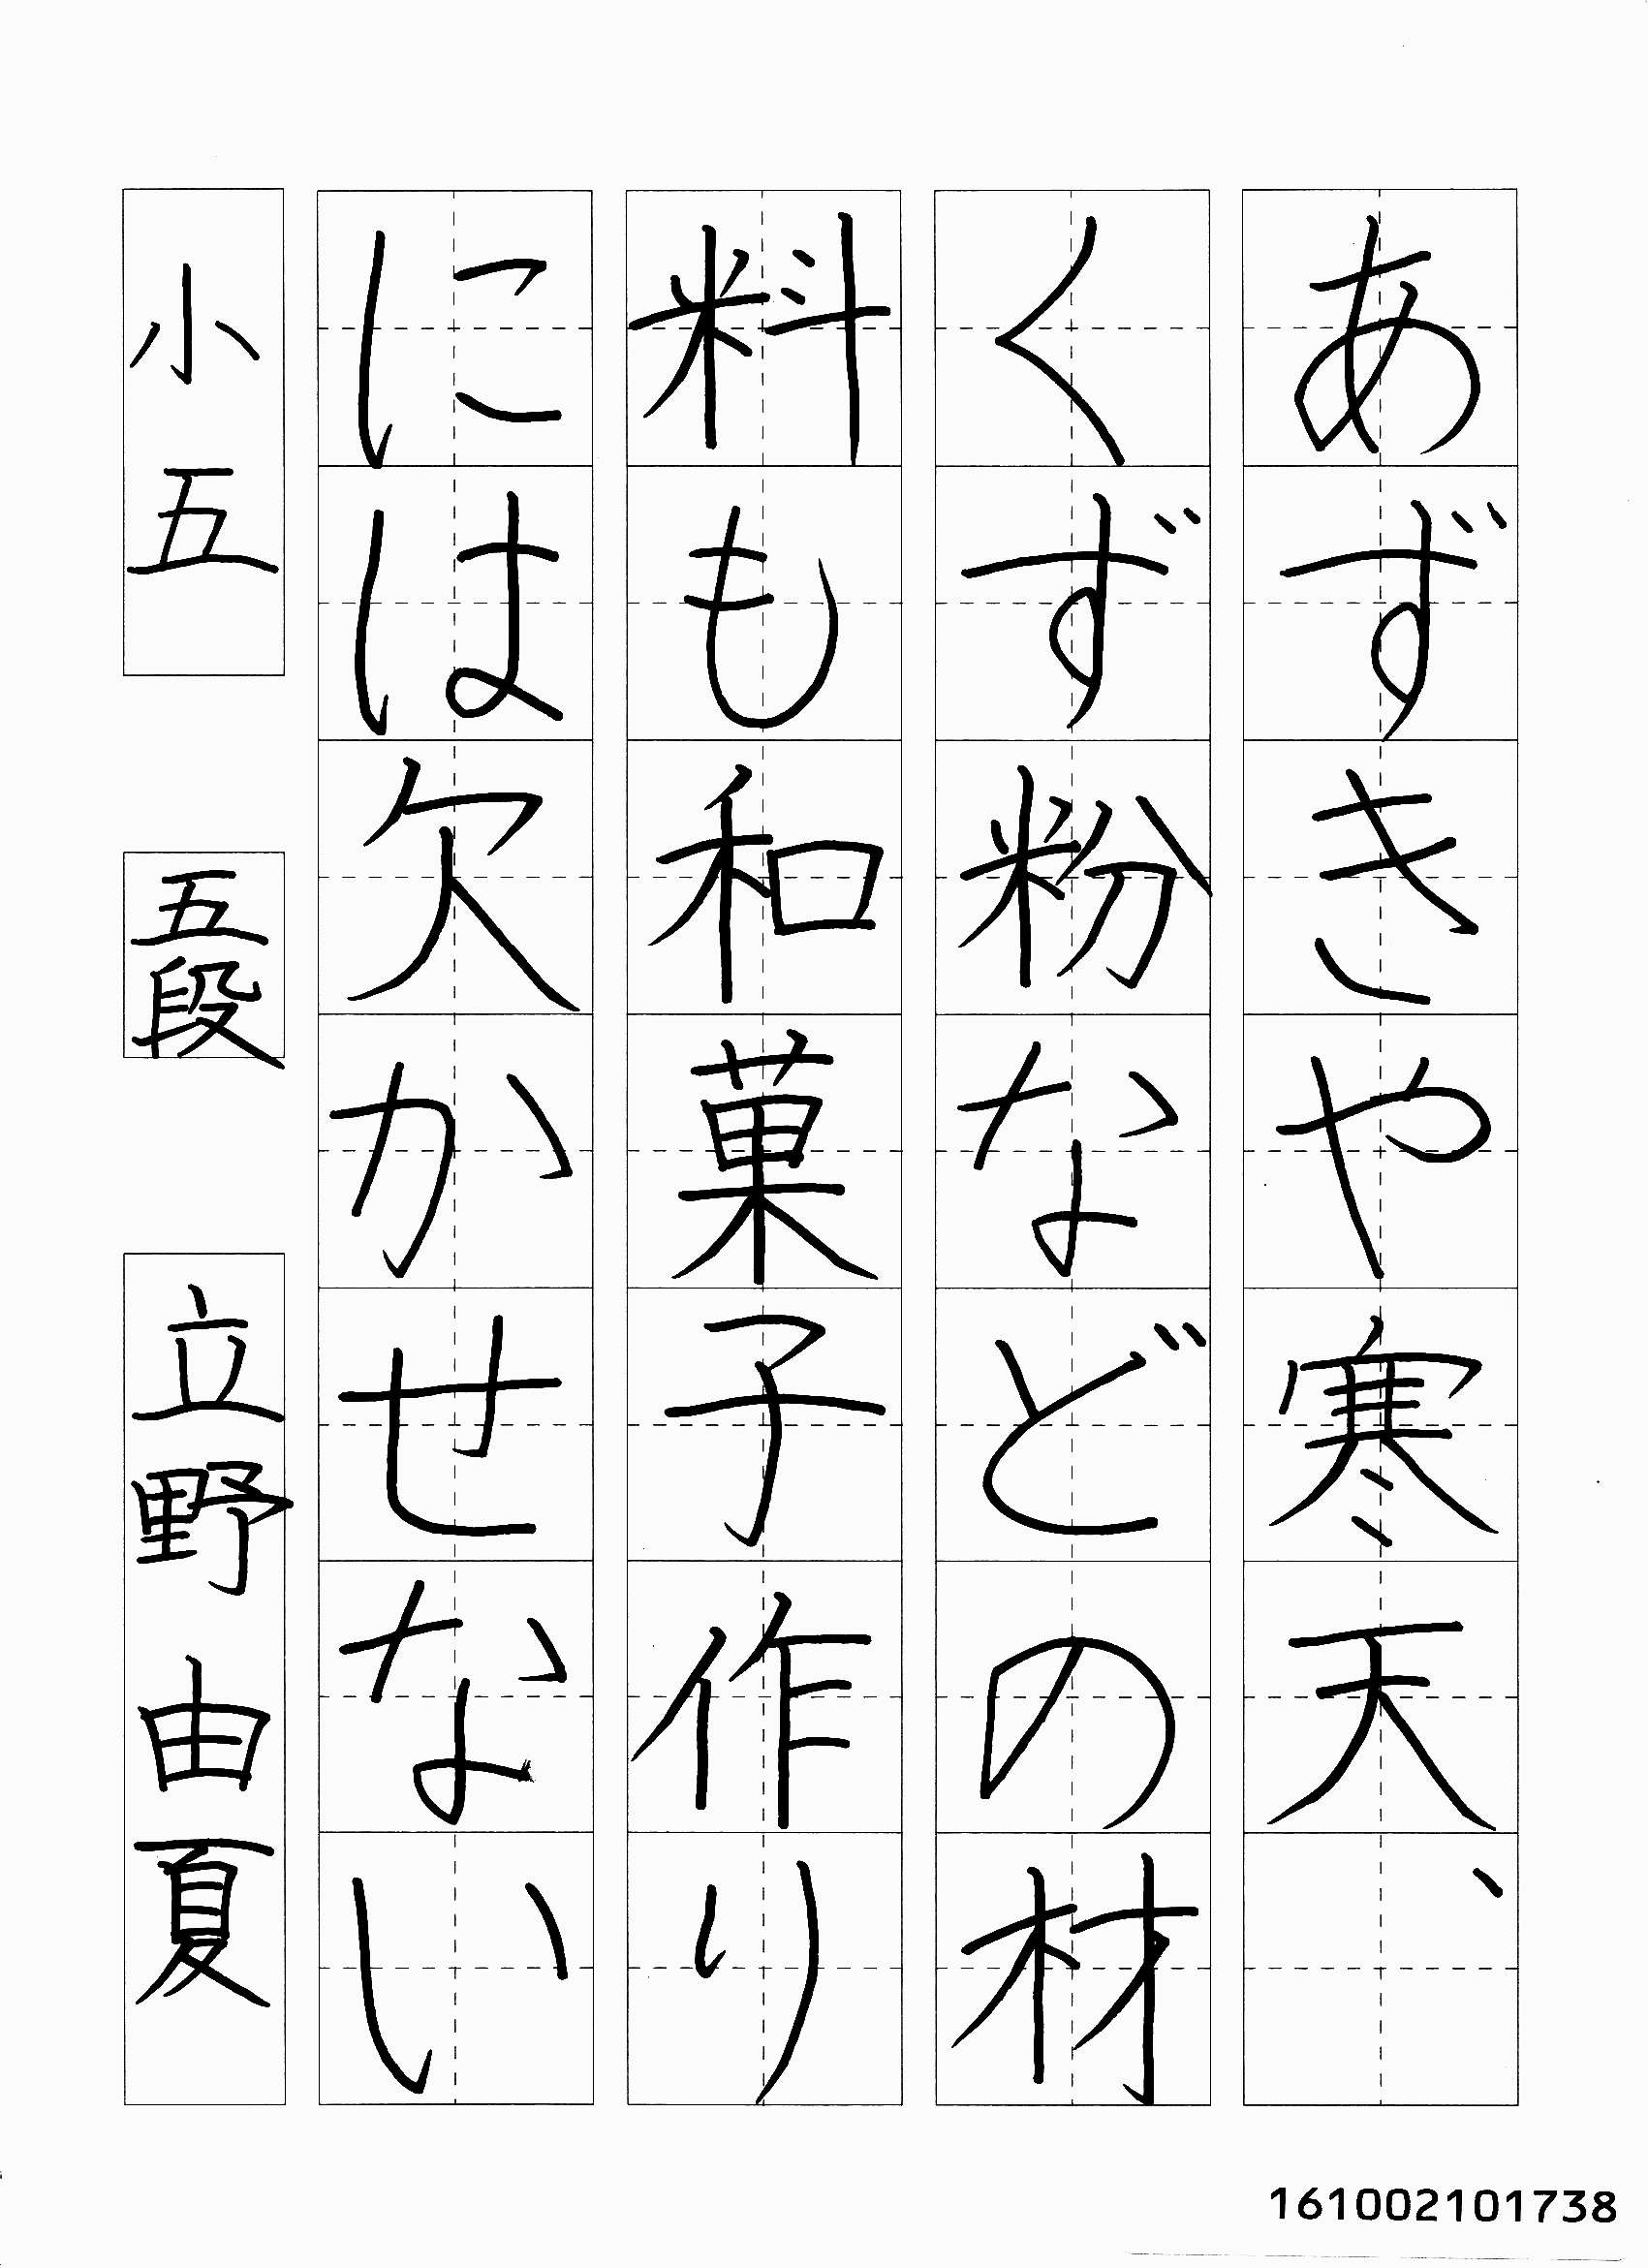 あずきや寒天、
くず粉などの材
料も和菓子作り
には欠かせない
小五 五段 立野由夏
161002101738